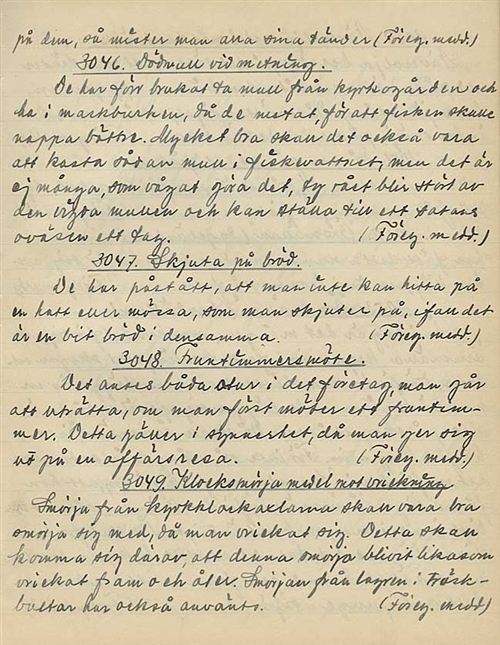 på dem, så mister man alla sina tänder (Föreg. medd.)
3046. Dödmull vid metning.
De har förr brukat ta mull från kyrkogården och
ha i maskburken, då de metat, för att fisken skulle
nappa bättre. Mycket bra skall det också vara
att kasta sådan mull i fiskevattnet, men det är
ej många, som vågat göra det, ty rået blir stört av
den vigda mullen och kan ställa till ett satans
oväsen ett tag. (Föreg. medd.)
3047. Skjuta på bröd.
De har påstått, att man inte kan hitta på
en hatt eller mössa, som man skjuter på, ifall det
är en bit bröd i densamma. (Föreg. medd.)
3048. Fruntimmersmöte.
Det anses båda otur i det företag, man går
att uträtta, om man först möter ett fruntim-
mer. Detta gäller i synnerhet, då man ger sig
ut på en affärsresa. (Föreg. medd.)
3049. Klocksmörja medel mot vrickning
Smörja från kyrkklockaxlarna skall vara bra
smörja sig med, då man vrickat sig. Detta skall
komma sig därav, att denna smörja blivit likasom
vrickat fram och åter. Smörjan från lagren i
bultar har också använts. (Föreg. medd)